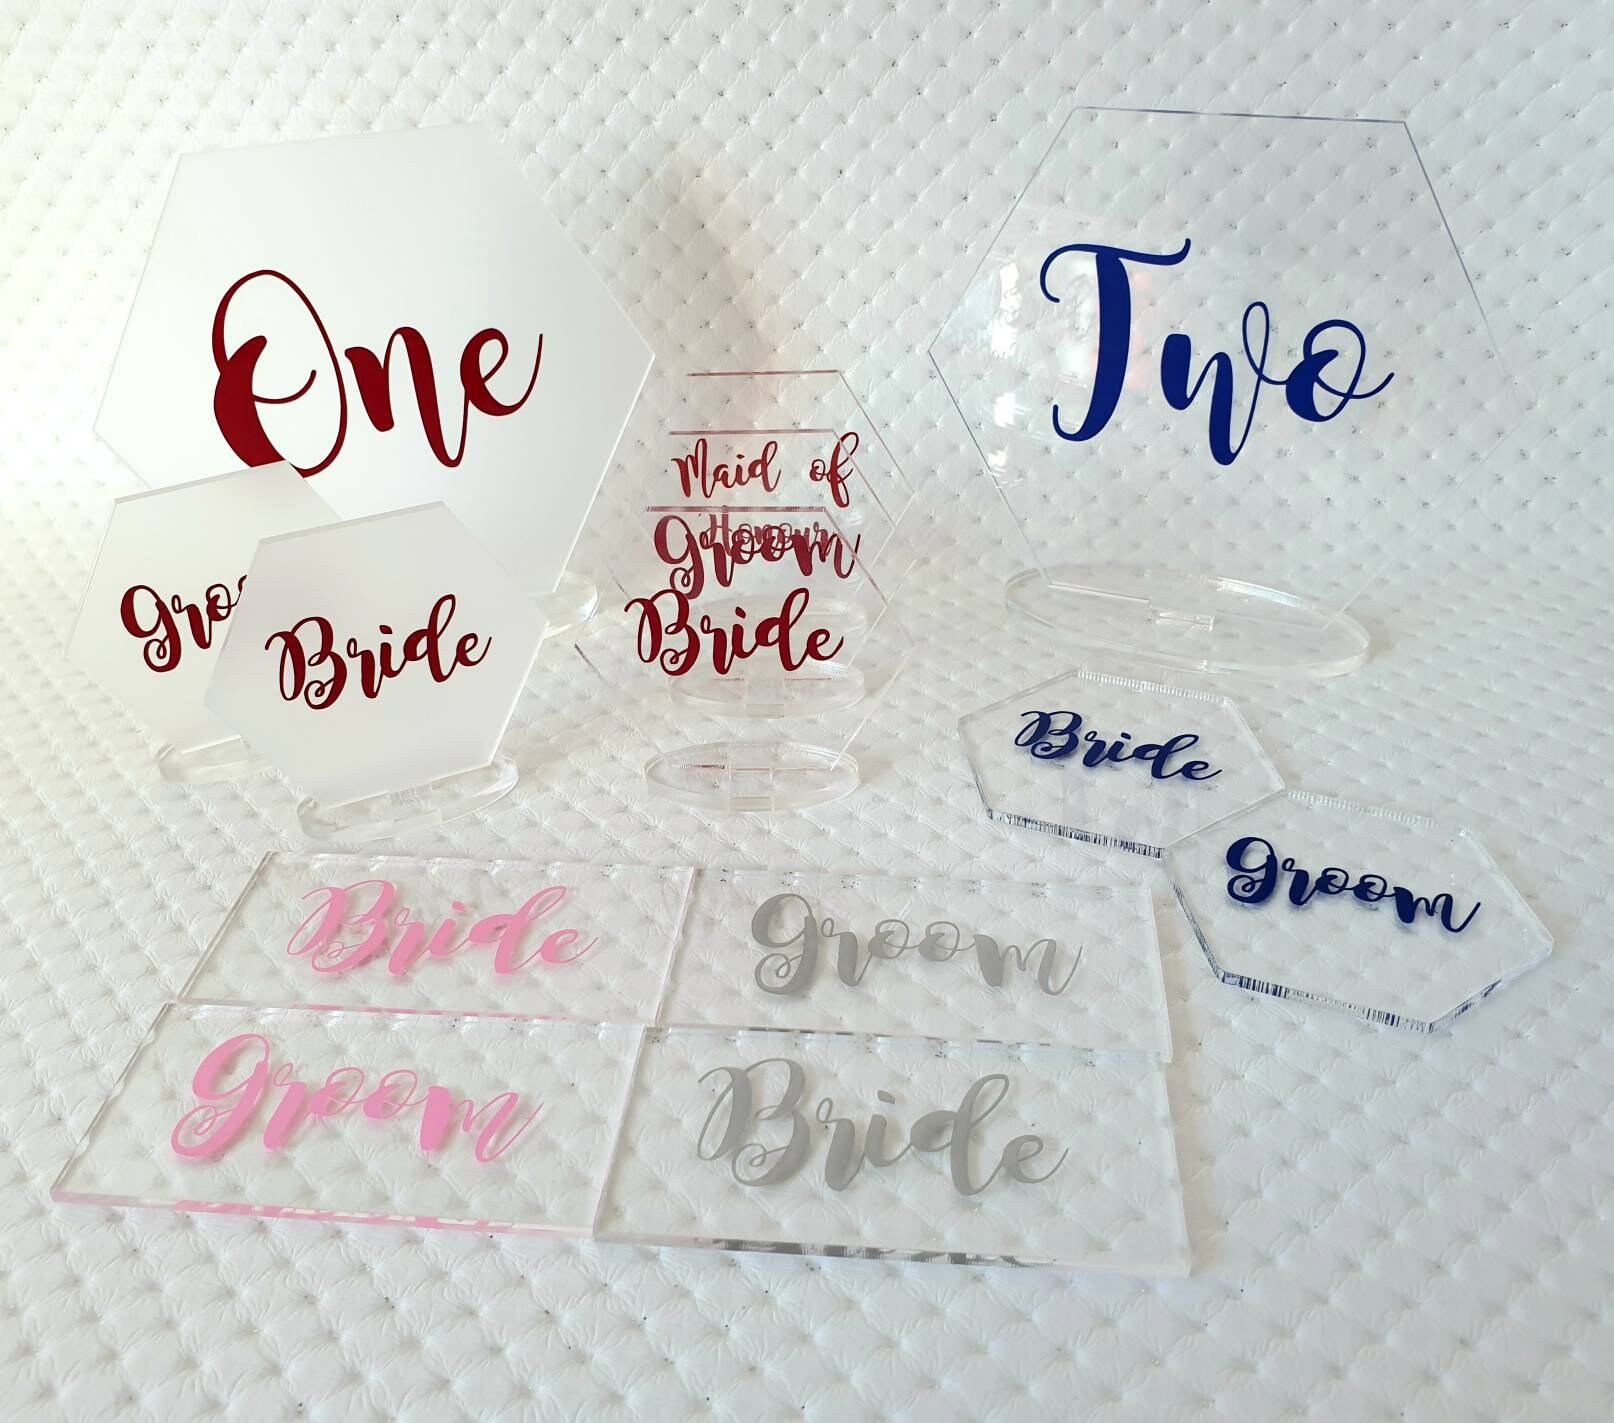 One
Two
Maid of
Honour
Groom
Bride
Groo
Bride
Bride
Groom
Bride
Groom
Groom
Bride